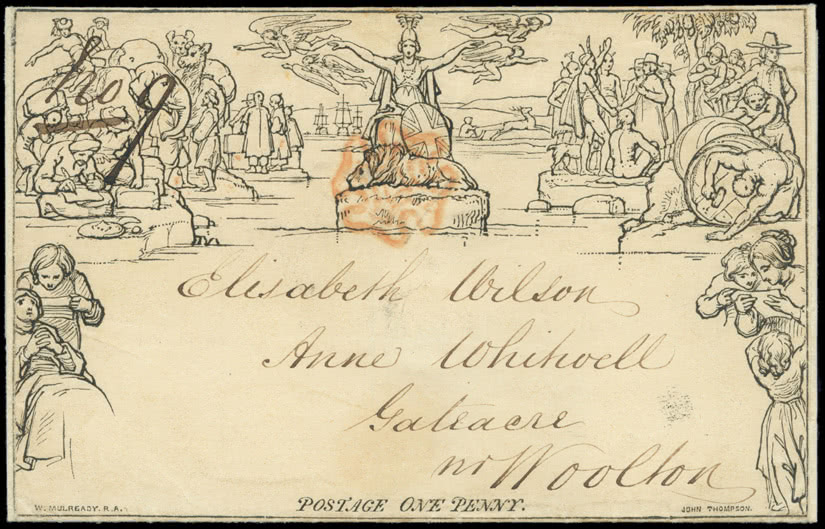 No 9
Elisabeth Wilson
Anne Whitwell
Gateacre
nr Woolton
POSTAGE ONE PENNY.
W. MULREADY. R.A.
JOHN THOMPSON.